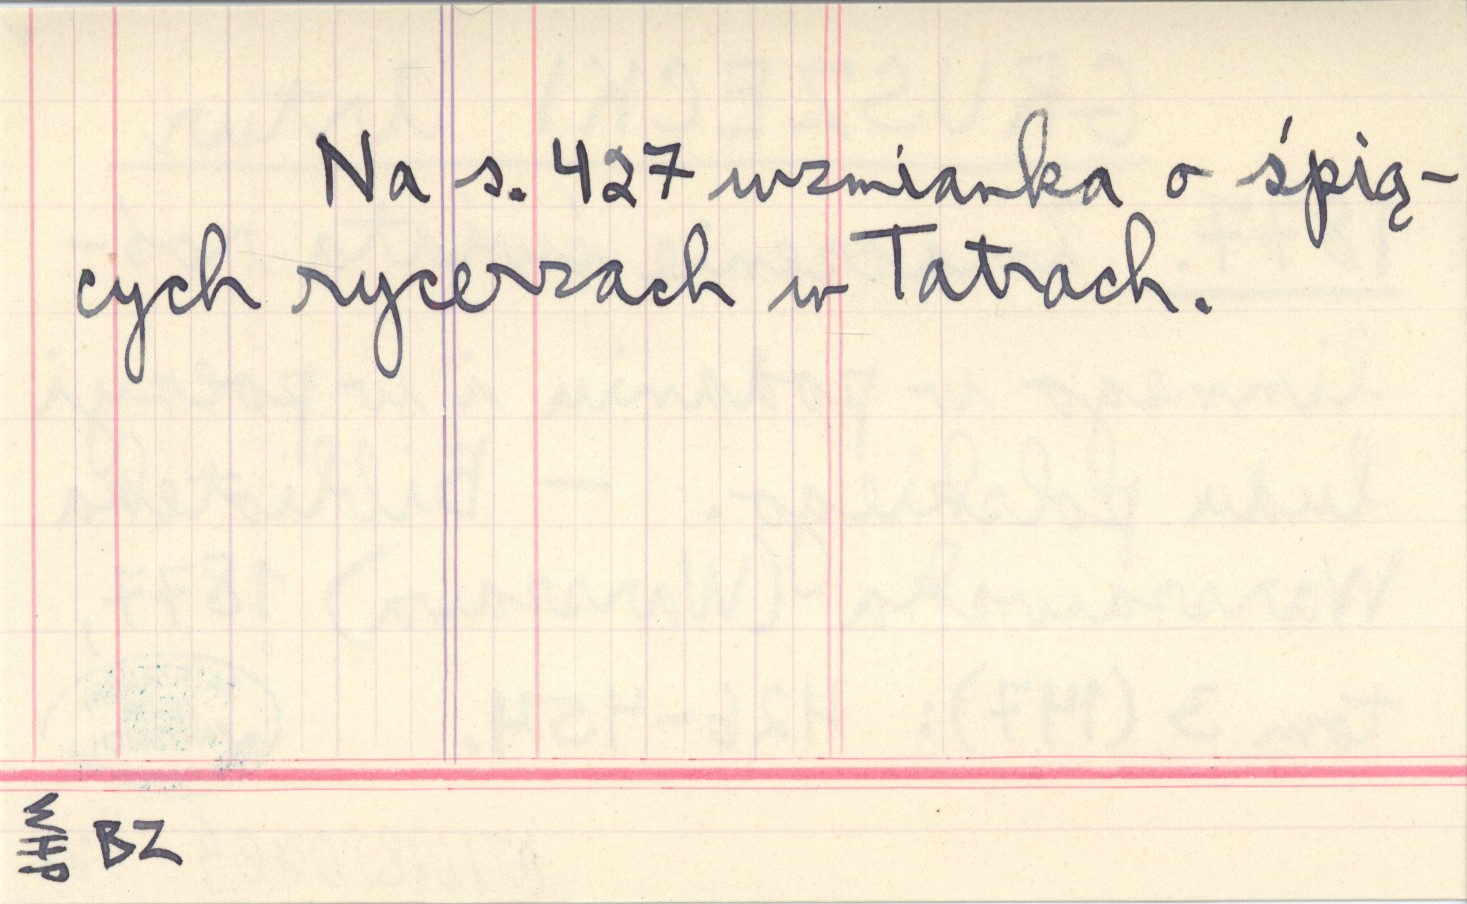 Na s. 427 wzmianka o śpią-
cych rycerzach w Tatrach.
WHP BZ